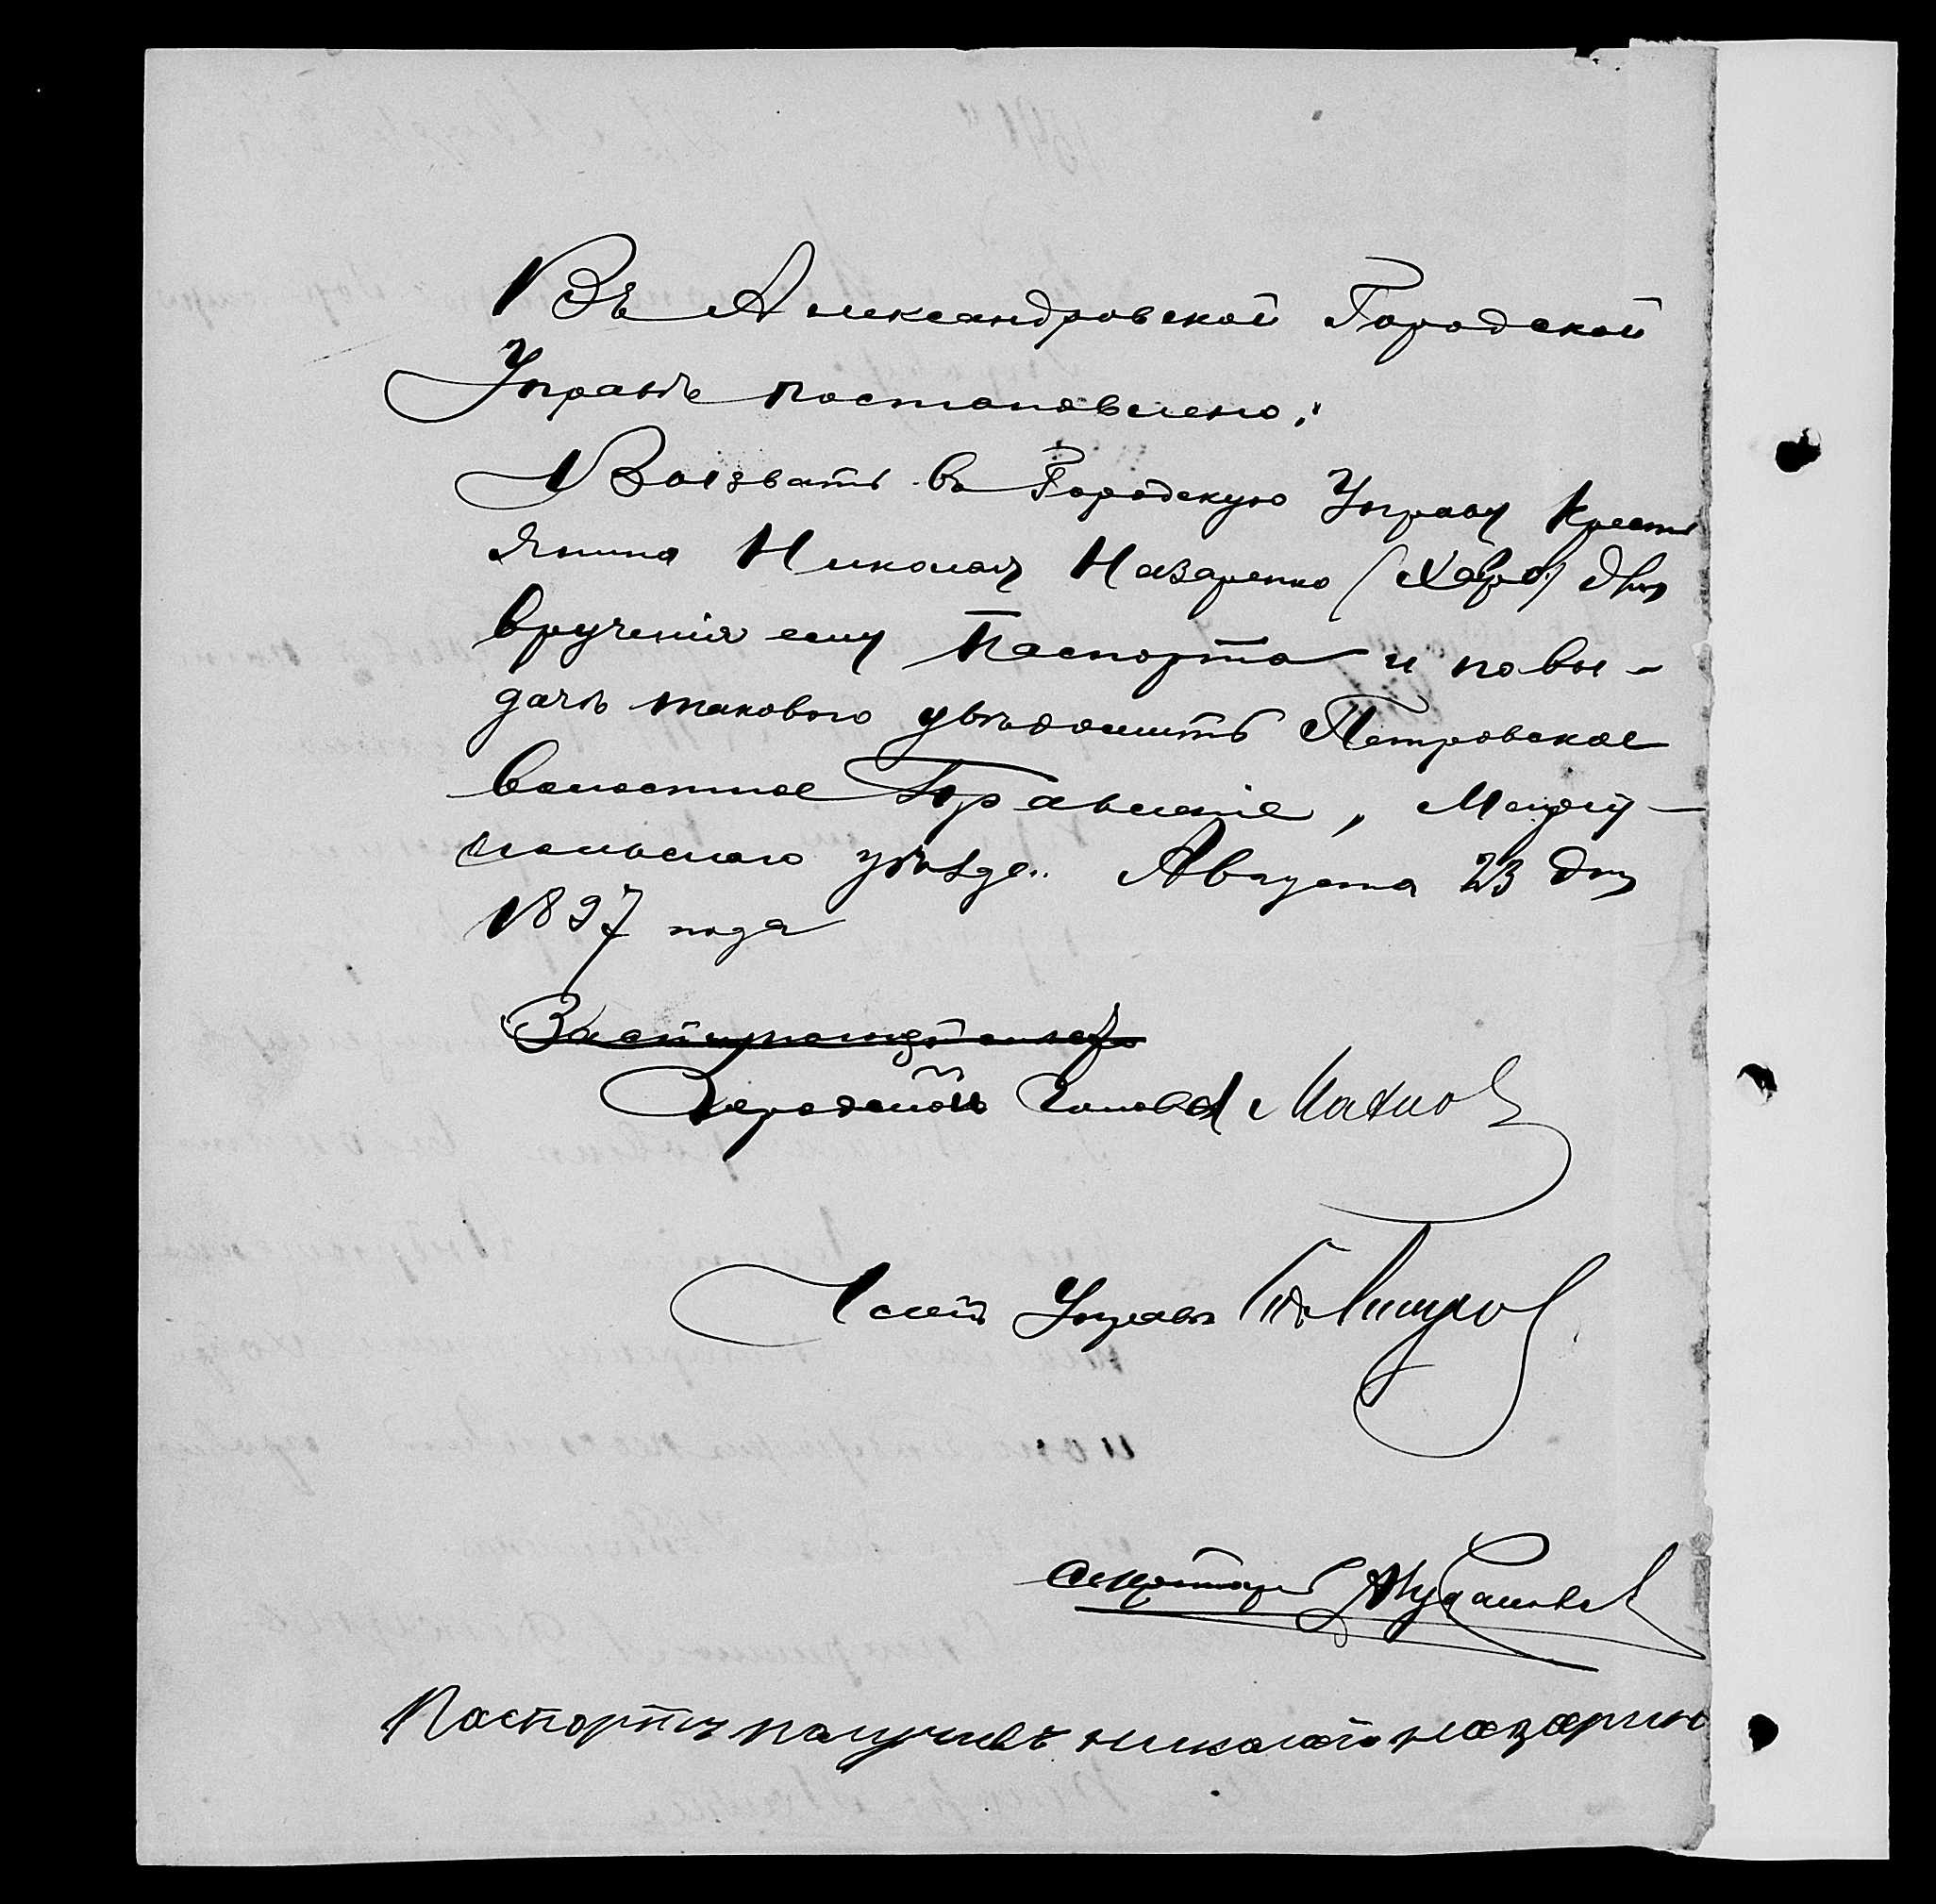 Въ Александровской Городской
Управѣ постановлено:
Вызвать въ Городскую Управу Кресть
янина Николая Назаренко для
врученія ему паспорта и по вы-
дачѣ таковаго увѣдомить Петровское
волостное Правленіе, Маріу-
польскаго уѣзда. Августа 23 дня
1897 года
Городской Голова Махно
Членъ Управы
Секретарь
Паспортъ получивъ николай назарин